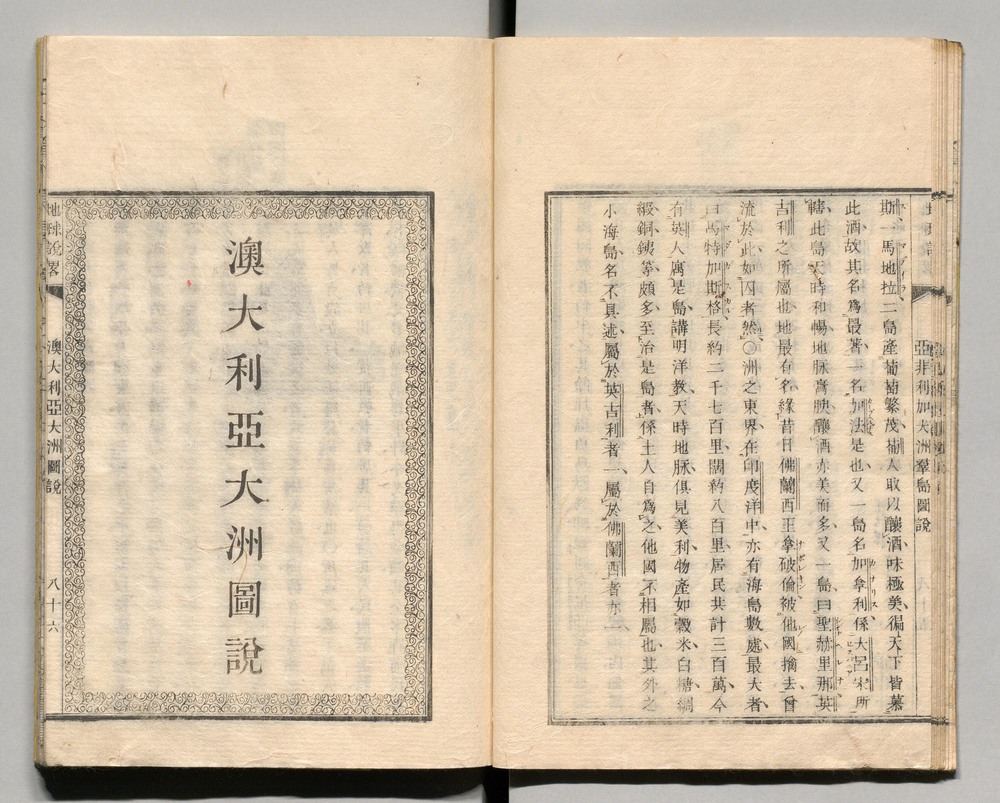 亞非利加大洲羣島圖說
斯一馬地拉二島產葡萄繁茂葡人取以釀酒味極美徧天下皆慕
此酒故其名爲最著一名加法是也又一島名加拿利係大呂宋所
轄此島天時和暢地脉膏腴釀酒亦美而多又一島曰聖赫里那英
吉利之所屬也地最有名緣昔日佛蘭西王拿破倫被他國擒去曾
流於此如囚者然○洲之東界在印度洋中亦有海島數處最大者
曰馬特加斯格長約二千七百里闊約八百里居民共計三百萬今
有英人寓是島講明洋教天時地脉俱見美利物產如穀米白糖綢
緞銅鐵等頗多至治是島者係土人自爲之他國不相屬也其外之
小海島名不具述屬於英吉利者一屬於佛蘭西者亦二
澳大利亞大洲圖說
地球說畧
澳大利亞大洲圖說
八十六